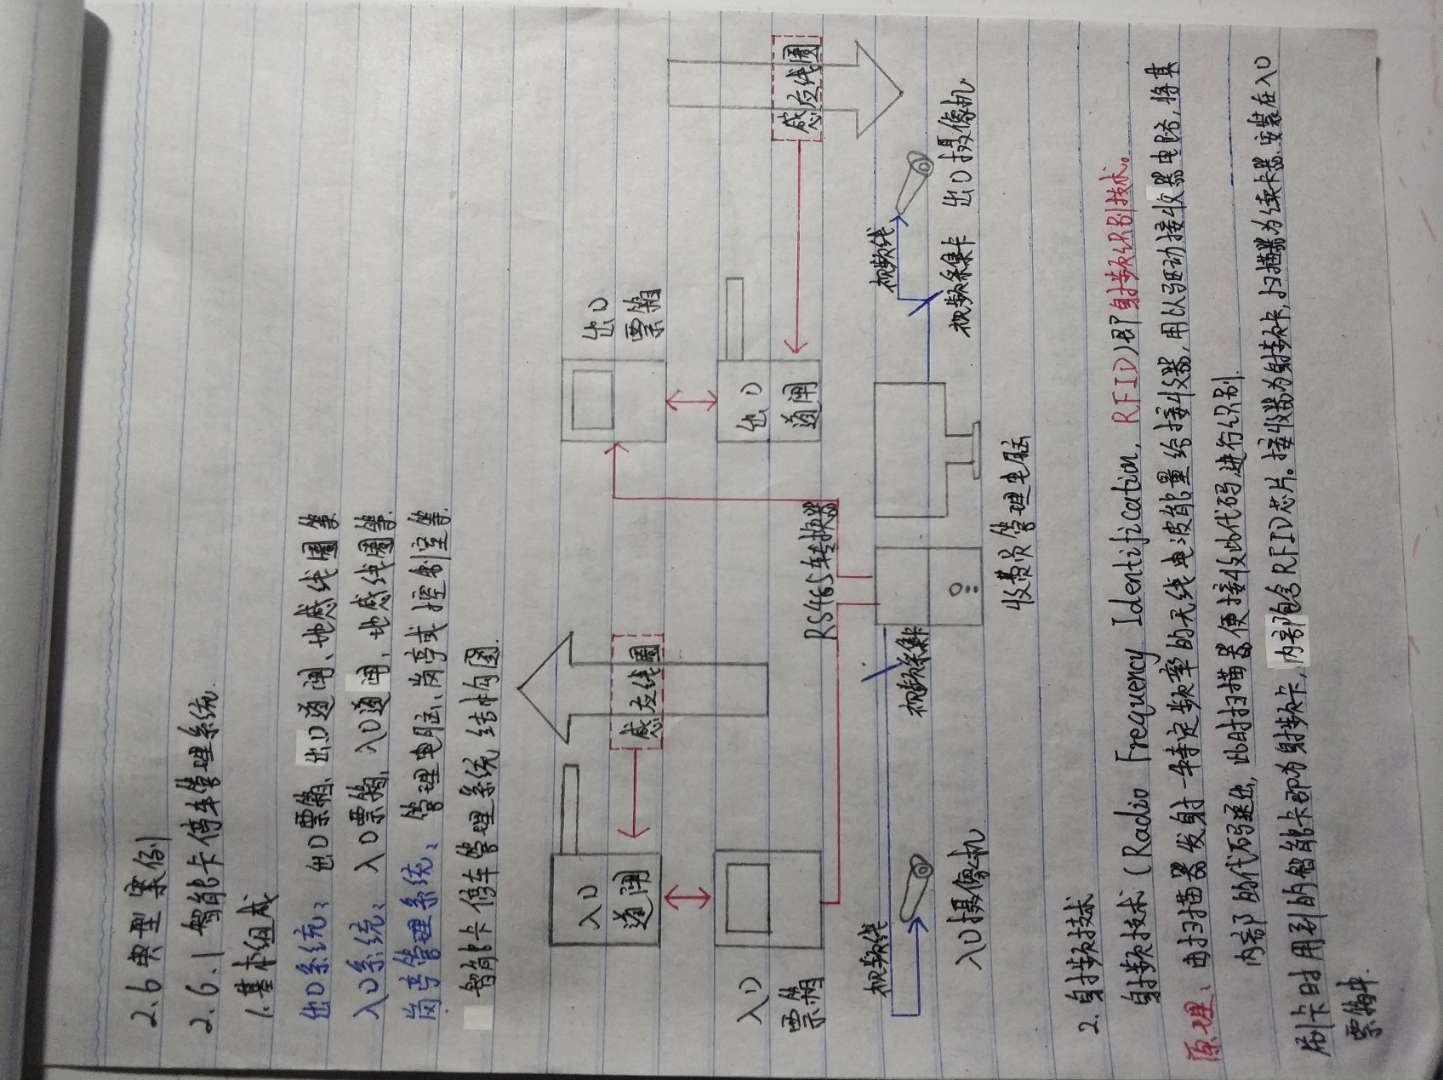 2.6 典型案例
2.6.1 智能卡停车管理系统
1.基本组成
出口系统：出口票箱、出口道闸、地感线圈等
入口系统：入口票箱、入口道闸、地感线圈等.
岗亭管理系统：管理电脑、岗亭或控制室等.
智能卡停车管理系统结构图
入口
道闸
感应线圈
出口
票箱
出口
道闸
感应线圈
入口
票箱
RS485转换器
视频线
视频采集卡
视频线
视频采集卡
出口摄像机
入口摄像机
收费员管理电脑
2.射频技术
射频技术(Radio Frequency Identification, RFID)即射频识别技术。
原理：由扫描器发射一特定频率的无线电波能量给接收器,用以驱动接收器电路,将其
内部的代码送出,此时扫描器便接收此代码进行识别.
刷卡时用到的智能卡即为射频卡,内部包含RFID芯片。接收器为射频卡,扫描器为读卡器,安装在入口
票箱中.